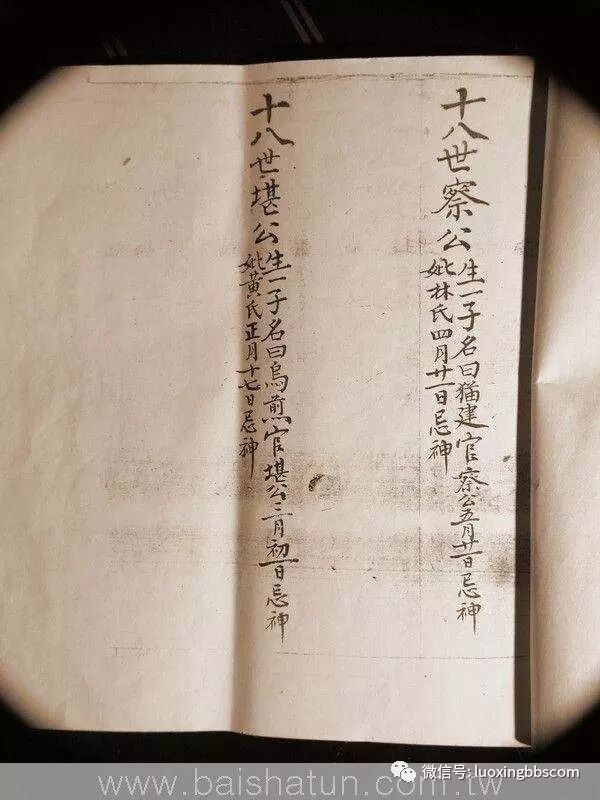 十八世察公
生一子名曰猫建官察公五月廿一日忌神
妣林氏四月廿一日忌神
十八世堪公
生一子名曰烏煎官堪公三月初一日忌神
妣黃氏正月十七日忌神
微信号: luoxingbbscom
www.baishatun.com.tw